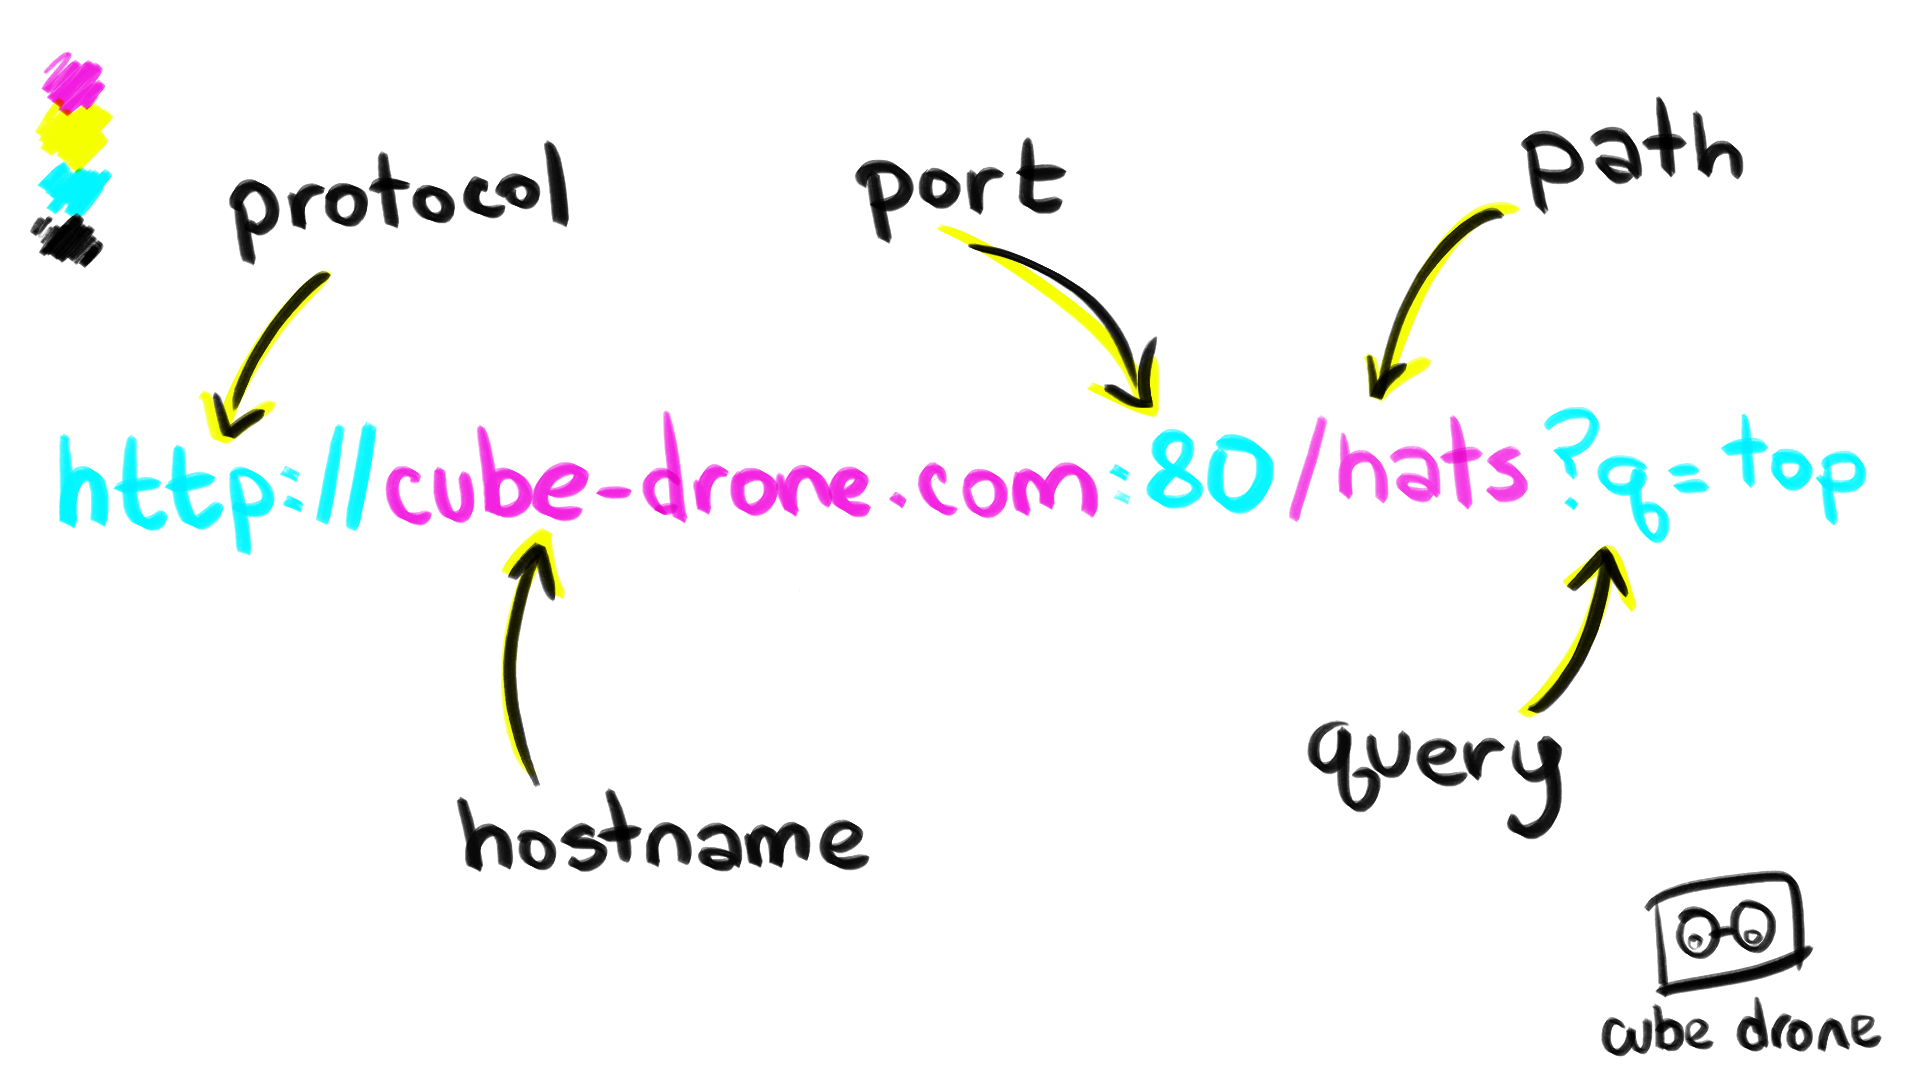 protocol
port
path
http://cube-drone.com:80/hats?q=top
hostname
query
cube drone